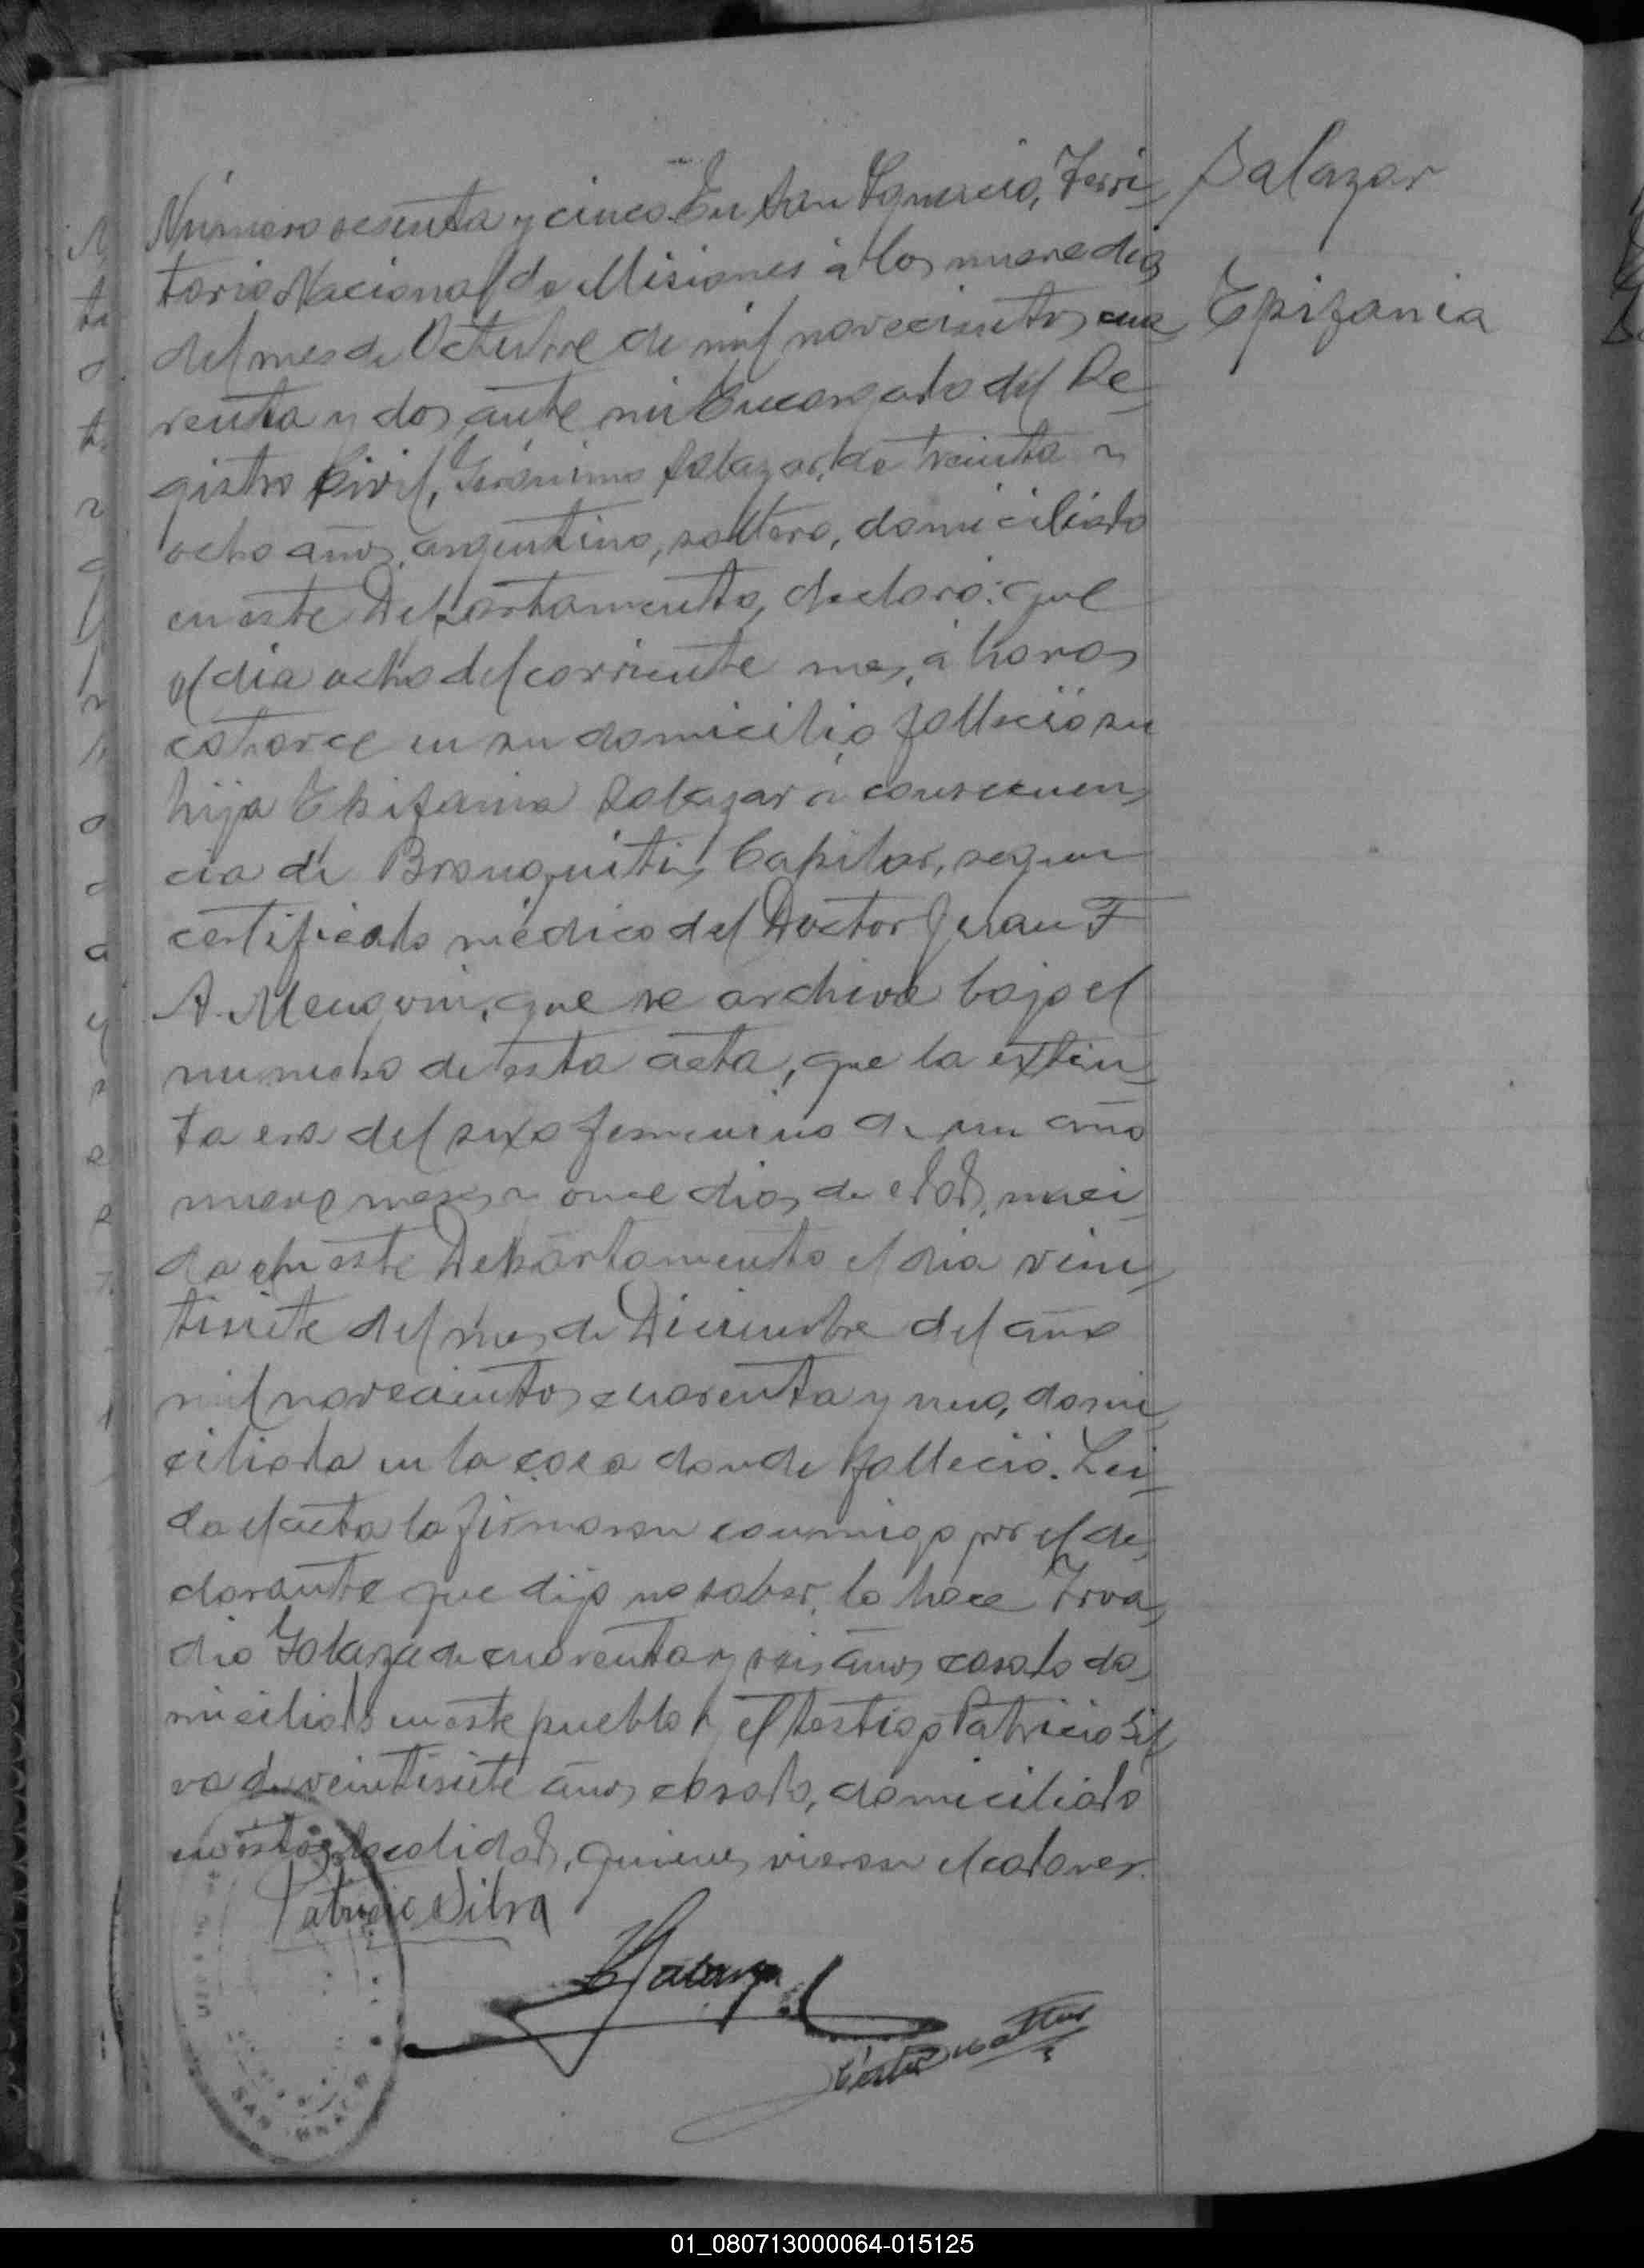 Número sesenta y cinco. En San Ignacio, Terri-
torio Nacional de Misiones á los nueve dias
del mes de Octubre de mil novecientos cua
renta y dos, ante mi Encargado del Re-
gistro Civil, Gerónimo Salazar, de treinta y
ocho años, argentino, soltero, domiciliado
en este Departamento, declaró: que
el dia ocho del corriente mes, á horas
catorce en su domicilio falleció su
hija Epifania Salazar á consecuen-
cia de Bronquitis Capilar, segun
certificado médico del Doctor Juan F
A. que se archiva bajo el
numero de esta acta, que la extin-
ta era del sexo femenino de un año
nueve meses y once dias de edad, naci-
da en este Departamento el dia vein-
tisiete del mes de Diciembre del año
mil novecientos cuarenta y uno, domi-
ciliada en la casa donde falleció. Lei-
da el acta la firmaron conmigo por el de-
clarante que dijo no saber, lo hace
de cuarenta y seis años casado do-
miciliado en este pueblo y el testigo Patricio Sil
va de veintisiete años casado, domiciliado
en esta localidad, quienes vieron el cadaver.
Salazar
Epifania
Patricio Silva
SAN IGNACIO
01_080713000064-015125